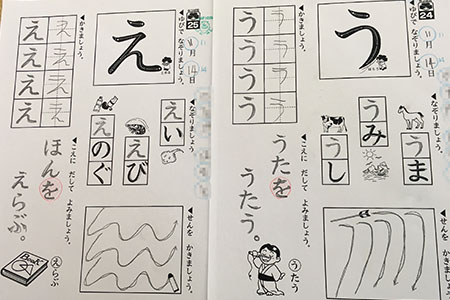 24
11月14日
◀ゆびで なぞりましょう。
う
◀かきましょう。
う う
う う
う う
う う
◀なぞりましょう。
うま
うみ
うし
◀こえに だして よみましょう。
うたを
うたう。
◀せんを かきましょう。
うたう
25
11月14日
◀ゆびで なぞりましょう。
え
◀かきましょう。
え え
え え
え え
え え
◀なぞりましょう。
えい
えび
えのぐ
◀こえに だして よみましょう。
ほんを
えらぶ。
◀せんを かきましょう。
えらぶ